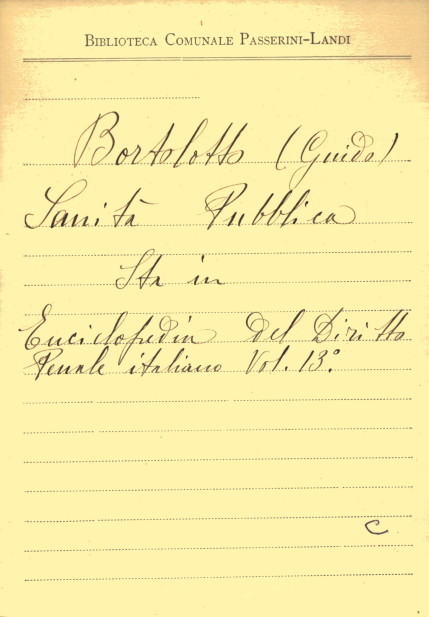 BIBLIOTECA COMUNALE PASSERINI-LANDI
Bortolotto (Guido)
Sanità Pubblica
Sta in
Enciclopedia del Diritto
Penale italiano Vol. 13º
C